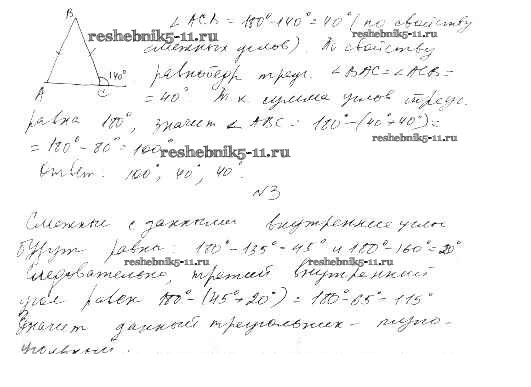 B
∠ ACB = 180° - 140° = 40° (по свойству
reshebnik5-11.ru
смежных углов). По свойству
140°
равнобедр треуг. ∠BAC = ∠ACB =
A C
= 40°. Т.к сумма углов треуг.
равна 180°, значит ∠ABC = 180° - (40° + 40°) =
reshebnik5-11.ru
= 180° - 80° = 100°
reshebnik5-11.ru
Ответ: 100°, 40°, 40°.
N3
Смежные с данными внутренние углы
reshebnik5-11.ru
будут равны: 180° - 135° = 45° и 180° - 160° = 20°
reshebnik5-11.ru reshebnik5-11.ru
Следовательно, третий внутренний
угол равен 180° - (45° + 20°) = 180° - 65° = 115°
Значит данный треугольник - тупо-
угольный.